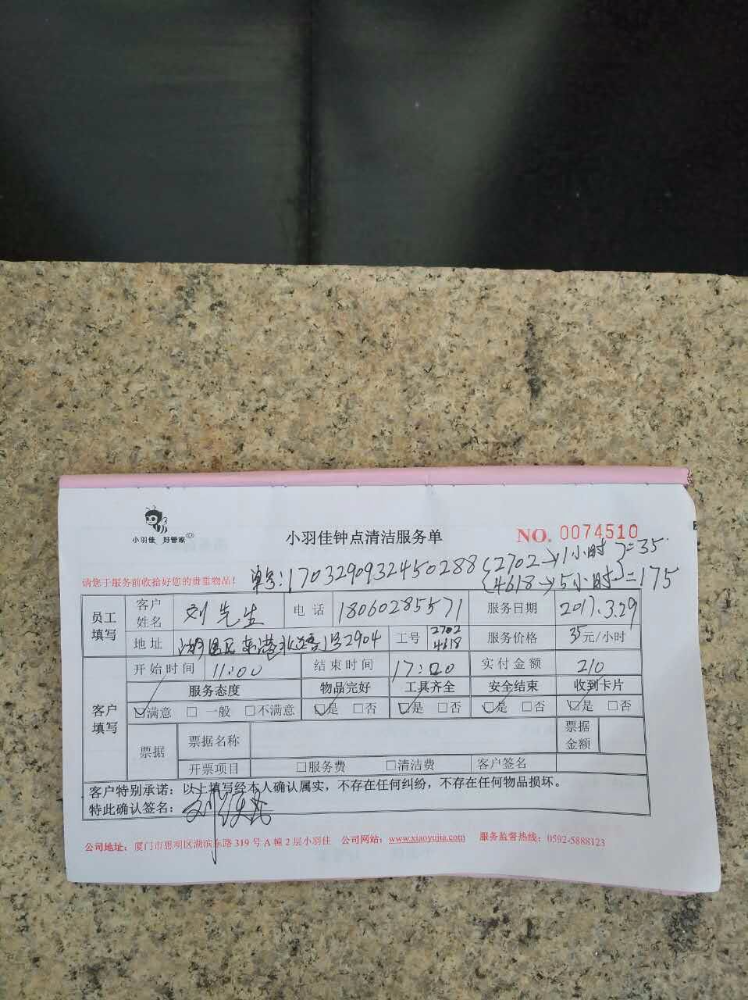 小羽佳 好管家
小羽佳钟点清洁服务单
NO. 0074510
请您于服务前收拾好您的贵重物品!
单号:1703290932450288 {2702→1小时}=35
{4618→5小时}=175
员工填写 客户姓名 刘先生 电话 18060285571 服务日期 2017.3.29
地址 湖里区 1号2904 工号 2702 4618 服务价格 35元/小时
客户填写 开始时间 11:00 结束时间 17:00 实付金额 210
服务态度 物品完好 工具齐全 安全结束 收到卡片
☑满意 □一般 □不满意 ☑是 □否 ☑是 □否 ☑是 □否 ☑是 □否
票据 票据名称 票据金额
开票项目 □服务费 □清洁费 客户签名
客户特别承诺:以上填写经本人确认属实,不存在任何纠纷,不存在任何物品损坏。
特此确认签名:
公司地址:厦门市思明区湖滨东路319号A幢2层小羽佳 公司网站:www.xiaoyujia.com 服务监督热线:0592-5888123